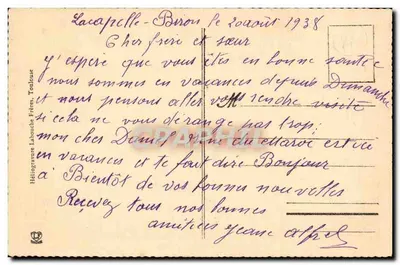 Lacapelle-Biron le 20 août 1938
Cher frere et sœur
J'espere que vous êtes en bonne santée
nous sommes en vacances depuis Dimanche
et nous pensons aller vous rendre visite
si cela ne vous dérange pas trop;
mon cher Daniel du Maroc est ici
en vacances et te fait dire Bonjour
à Bientôt de vos bonnes nouvelles
Recevez tous nos bonnes
amitiées Jeane Alfred
Héliogravure Labouche Frères, Toulouse